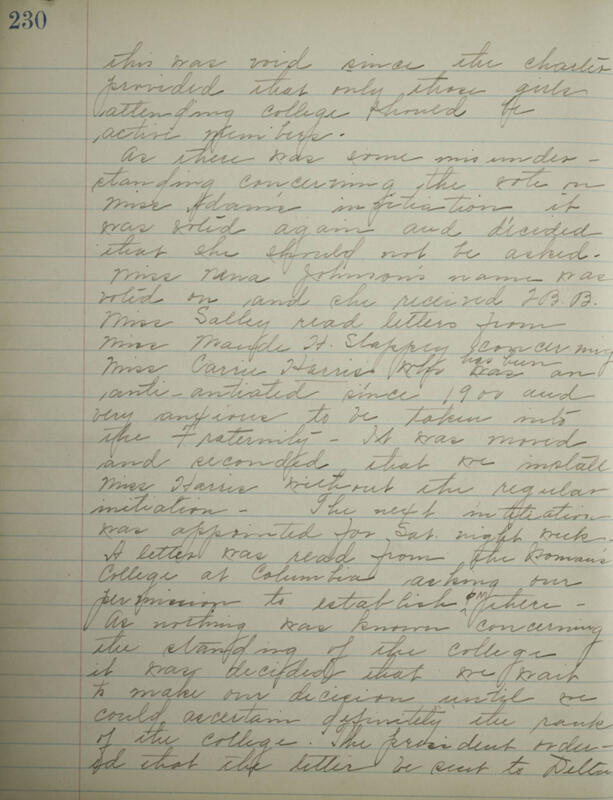 230
this was void since the charter
provided that only those girls
attending college should be
active members.
As there was some misunder-
standing concerning the vote on
Miss Adam's initiation it
was voted again and decided
that she should not be asked.
Miss Nena Johnson's name was
voted on and she received 2 B.B.
Miss Salley read letters from
Miss Maude H. Slappey concerning
Miss Carrie Harris who has been an
anti-antiated since 1900 and
very anxious to be taken into
the Fraternity - It was moved
and seconded that we install
Miss Harris without the regular
initiation - The next initiation
was appointed for Sat. night week.
A letter was read from the Woman's
College at Columbia asking our
permission to establish ΦΜ there -
As nothing was known concerning
the standing of the college
it was decided that we wait
to make our decision until we
could ascertain definitely the rank
of the college. The president order-
ed that the letter be sent to Delta